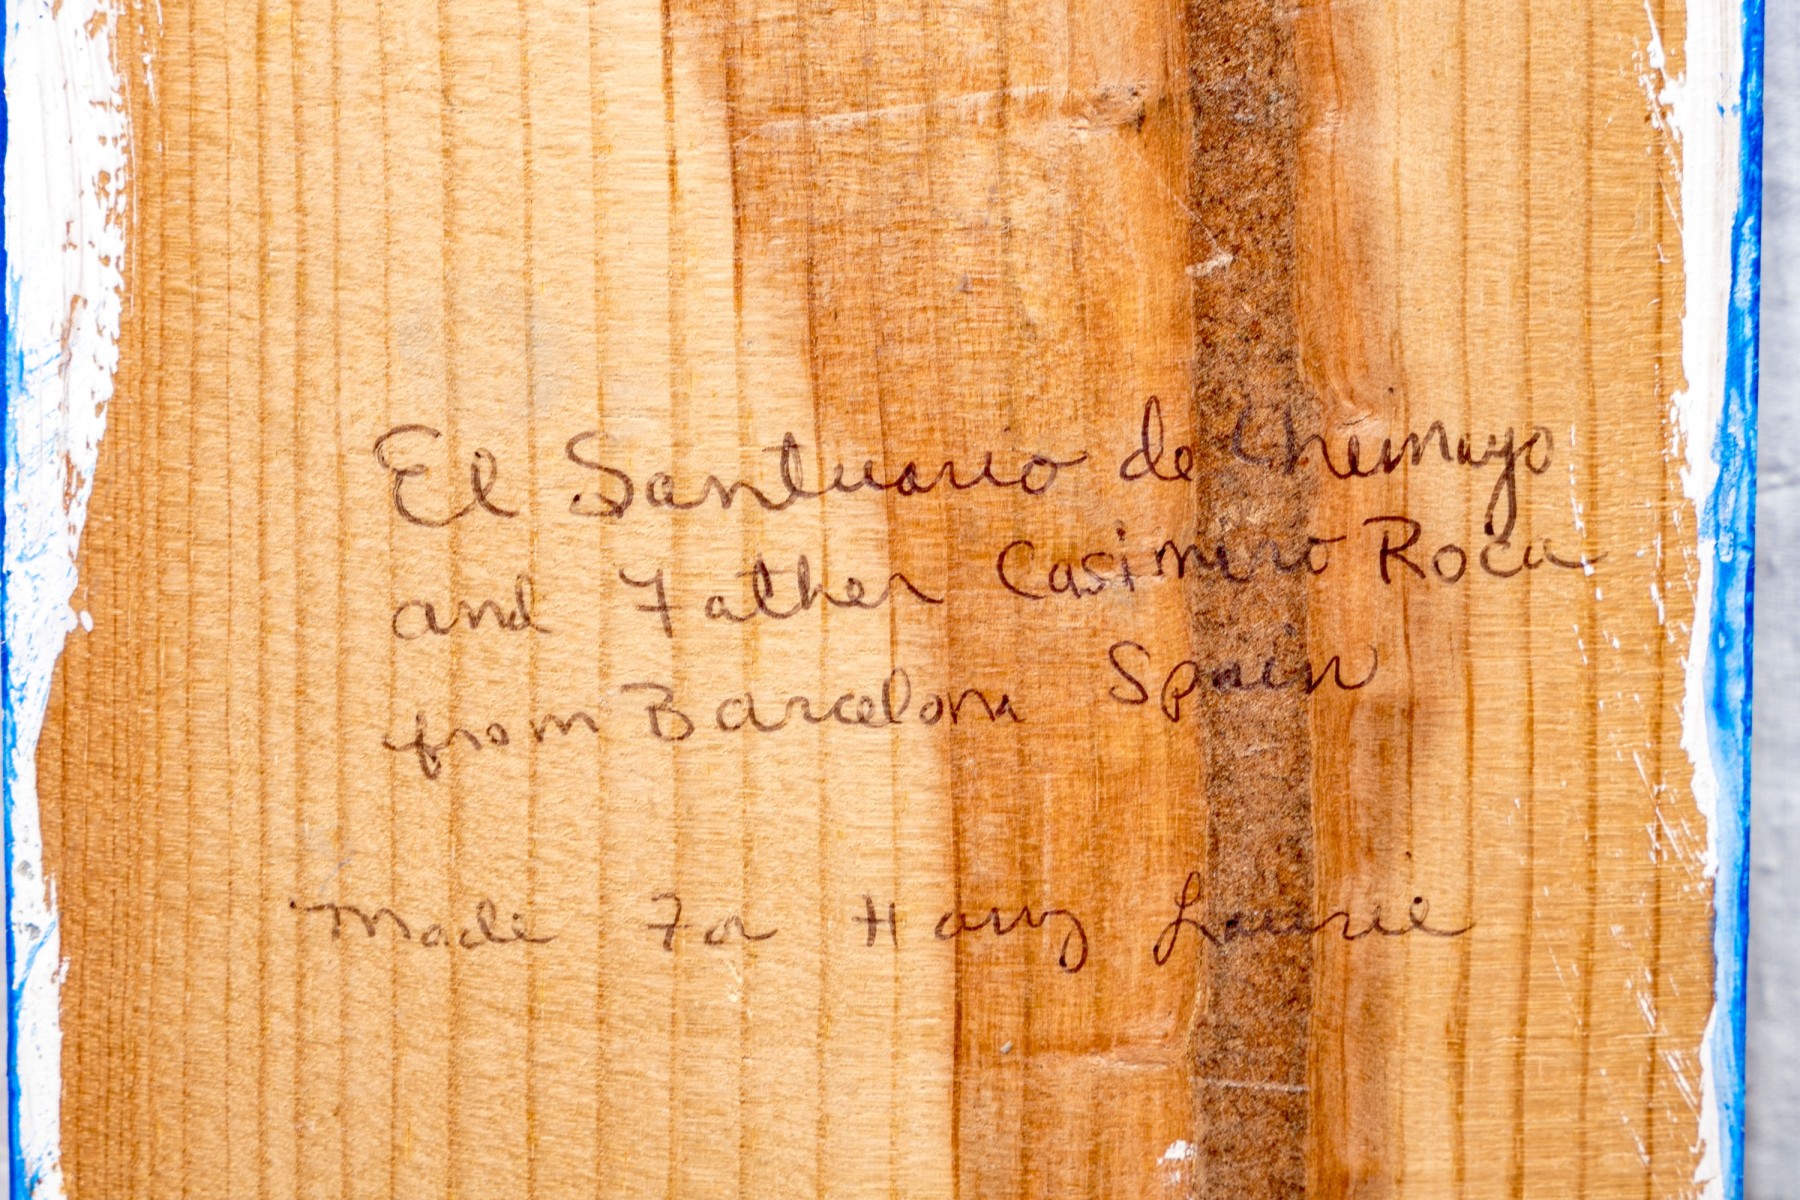 El Santuario de Chimayo
and Father Casimiro Roca
from Barcelona Spain
Made For Harry Laurie